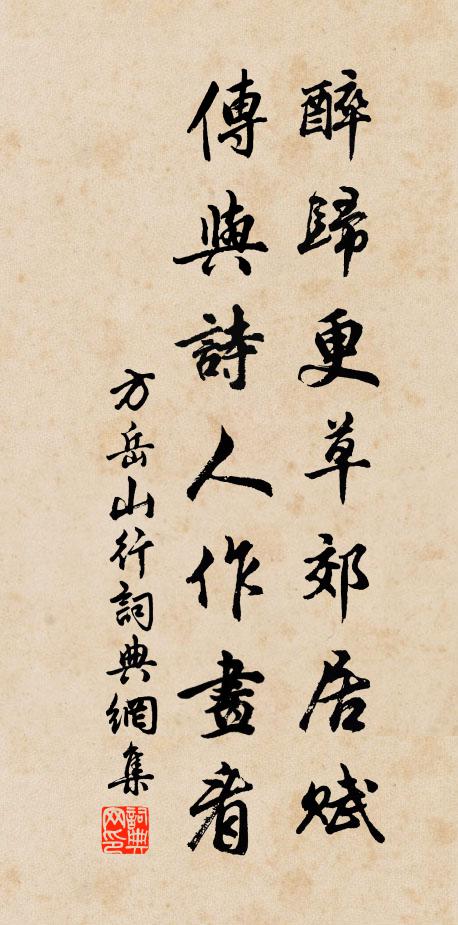 醉歸更草郊居賦
傳與詩人作畫看
方岳山行詞典網集
詞典
网印